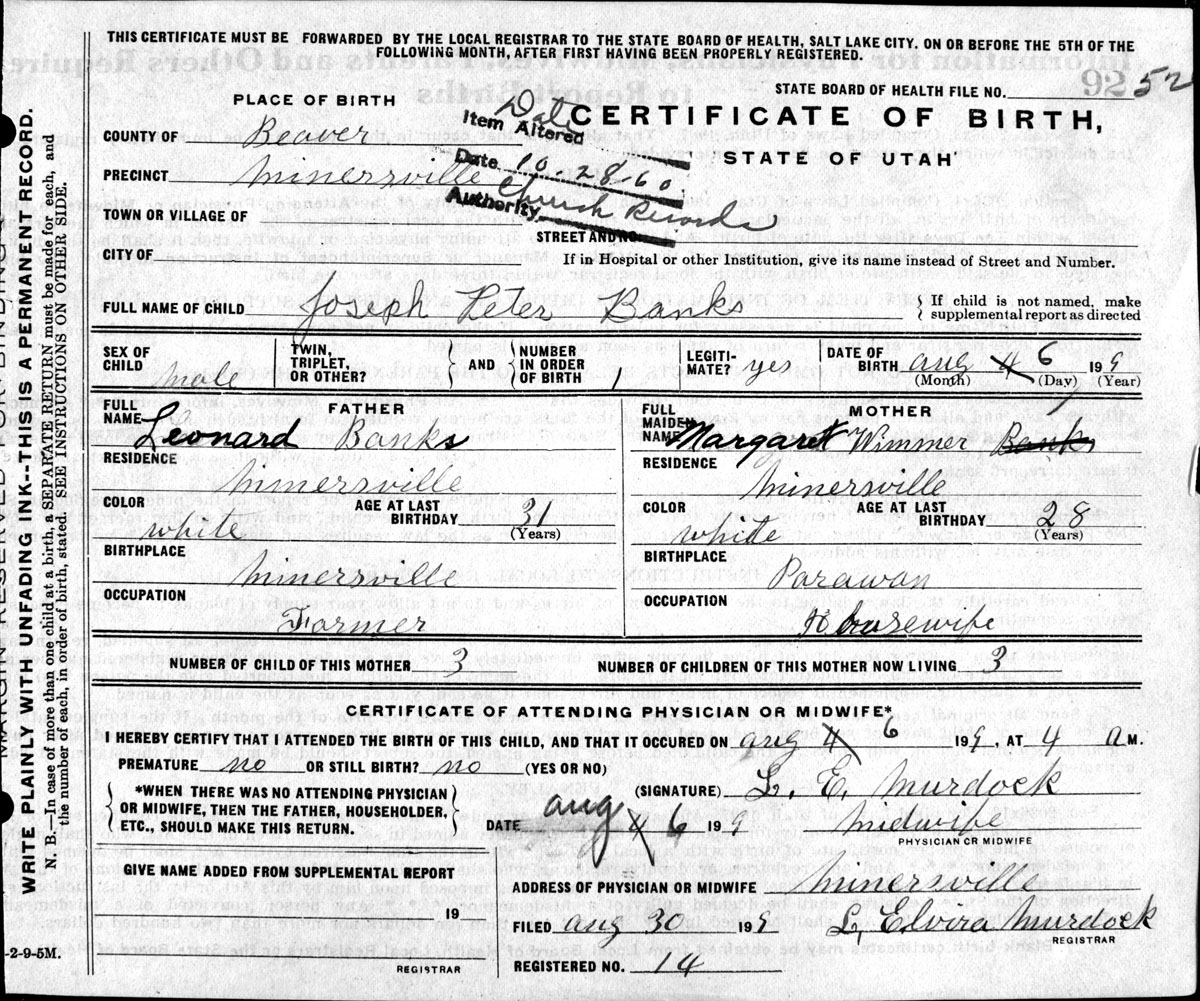 THIS CERTIFICATE MUST BE FORWARDED BY THE LOCAL REGISTRAR TO THE STATE BOARD OF HEALTH, SALT LAKE CITY. ON OR BEFORE THE 5TH OF THE
FOLLOWING MONTH, AFTER FIRST HAVING BEEN PROPERLY REGISTERED.
STATE BOARD OF HEALTH FILE NO. 52
PLACE OF BIRTH
CERTIFICATE OF BIRTH,
STATE OF UTAH
Item Altered Date
Date 10-28-60
Authority Church Records
COUNTY OF Beaver
PRECINCT Minersville
TOWN OR VILLAGE OF
STREET AND NO.
CITY OF
If in Hospital or other Institution, give its name instead of Street and Number.
FULL NAME OF CHILD Joseph Peter Banks
If child is not named, make
supplemental report as directed
SEX OF
CHILD male
TWIN,
TRIPLET,
OR OTHER?
AND
NUMBER
IN ORDER
OF BIRTH 1
LEGITI-
MATE? yes
DATE OF
BIRTH aug 4 6 199
(Month) (Day) (Year)
FULL
NAME
FATHER
Leonard Banks
RESIDENCE
Minersville
COLOR
white
AGE AT LAST
BIRTHDAY 31
(Years)
BIRTHPLACE
Minersville
OCCUPATION
Farmer
FULL
MAIDEN
NAME
MOTHER
Margaret Wimmer Banks
RESIDENCE
Minersville
COLOR
white
AGE AT LAST
BIRTHDAY 28
(Years)
BIRTHPLACE
Parawan
OCCUPATION
Housewife
NUMBER OF CHILD OF THIS MOTHER 3
NUMBER OF CHILDREN OF THIS MOTHER NOW LIVING 3
CERTIFICATE OF ATTENDING PHYSICIAN OR MIDWIFE*
I HEREBY CERTIFY THAT I ATTENDED THE BIRTH OF THIS CHILD, AND THAT IT OCCURED ON aug 4 6 199, AT 4 a M.
PREMATURE no OR STILL BIRTH? no (YES OR NO)
*WHEN THERE WAS NO ATTENDING PHYSICIAN
OR MIDWIFE, THEN THE FATHER, HOUSEHOLDER,
ETC., SHOULD MAKE THIS RETURN.
(SIGNATURE) L. E. Murdock
DATE aug 6 199
Midwife
PHYSICIAN OR MIDWIFE
GIVE NAME ADDED FROM SUPPLEMENTAL REPORT
19
REGISTRAR
ADDRESS OF PHYSICIAN OR MIDWIFE Minersville
FILED aug 30 199 L, Elvira Murdock
REGISTRAR
REGISTERED NO. 14
WRITE PLAINLY WITH UNFADING INK--THIS IS A PERMANENT RECORD.
N. B.—In case of more than one child at a birth, a SEPARATE RETURN must be made for each, and
the number of each, in order of birth, stated. SEE INSTRUCTIONS ON OTHER SIDE.
-2-9-5M.